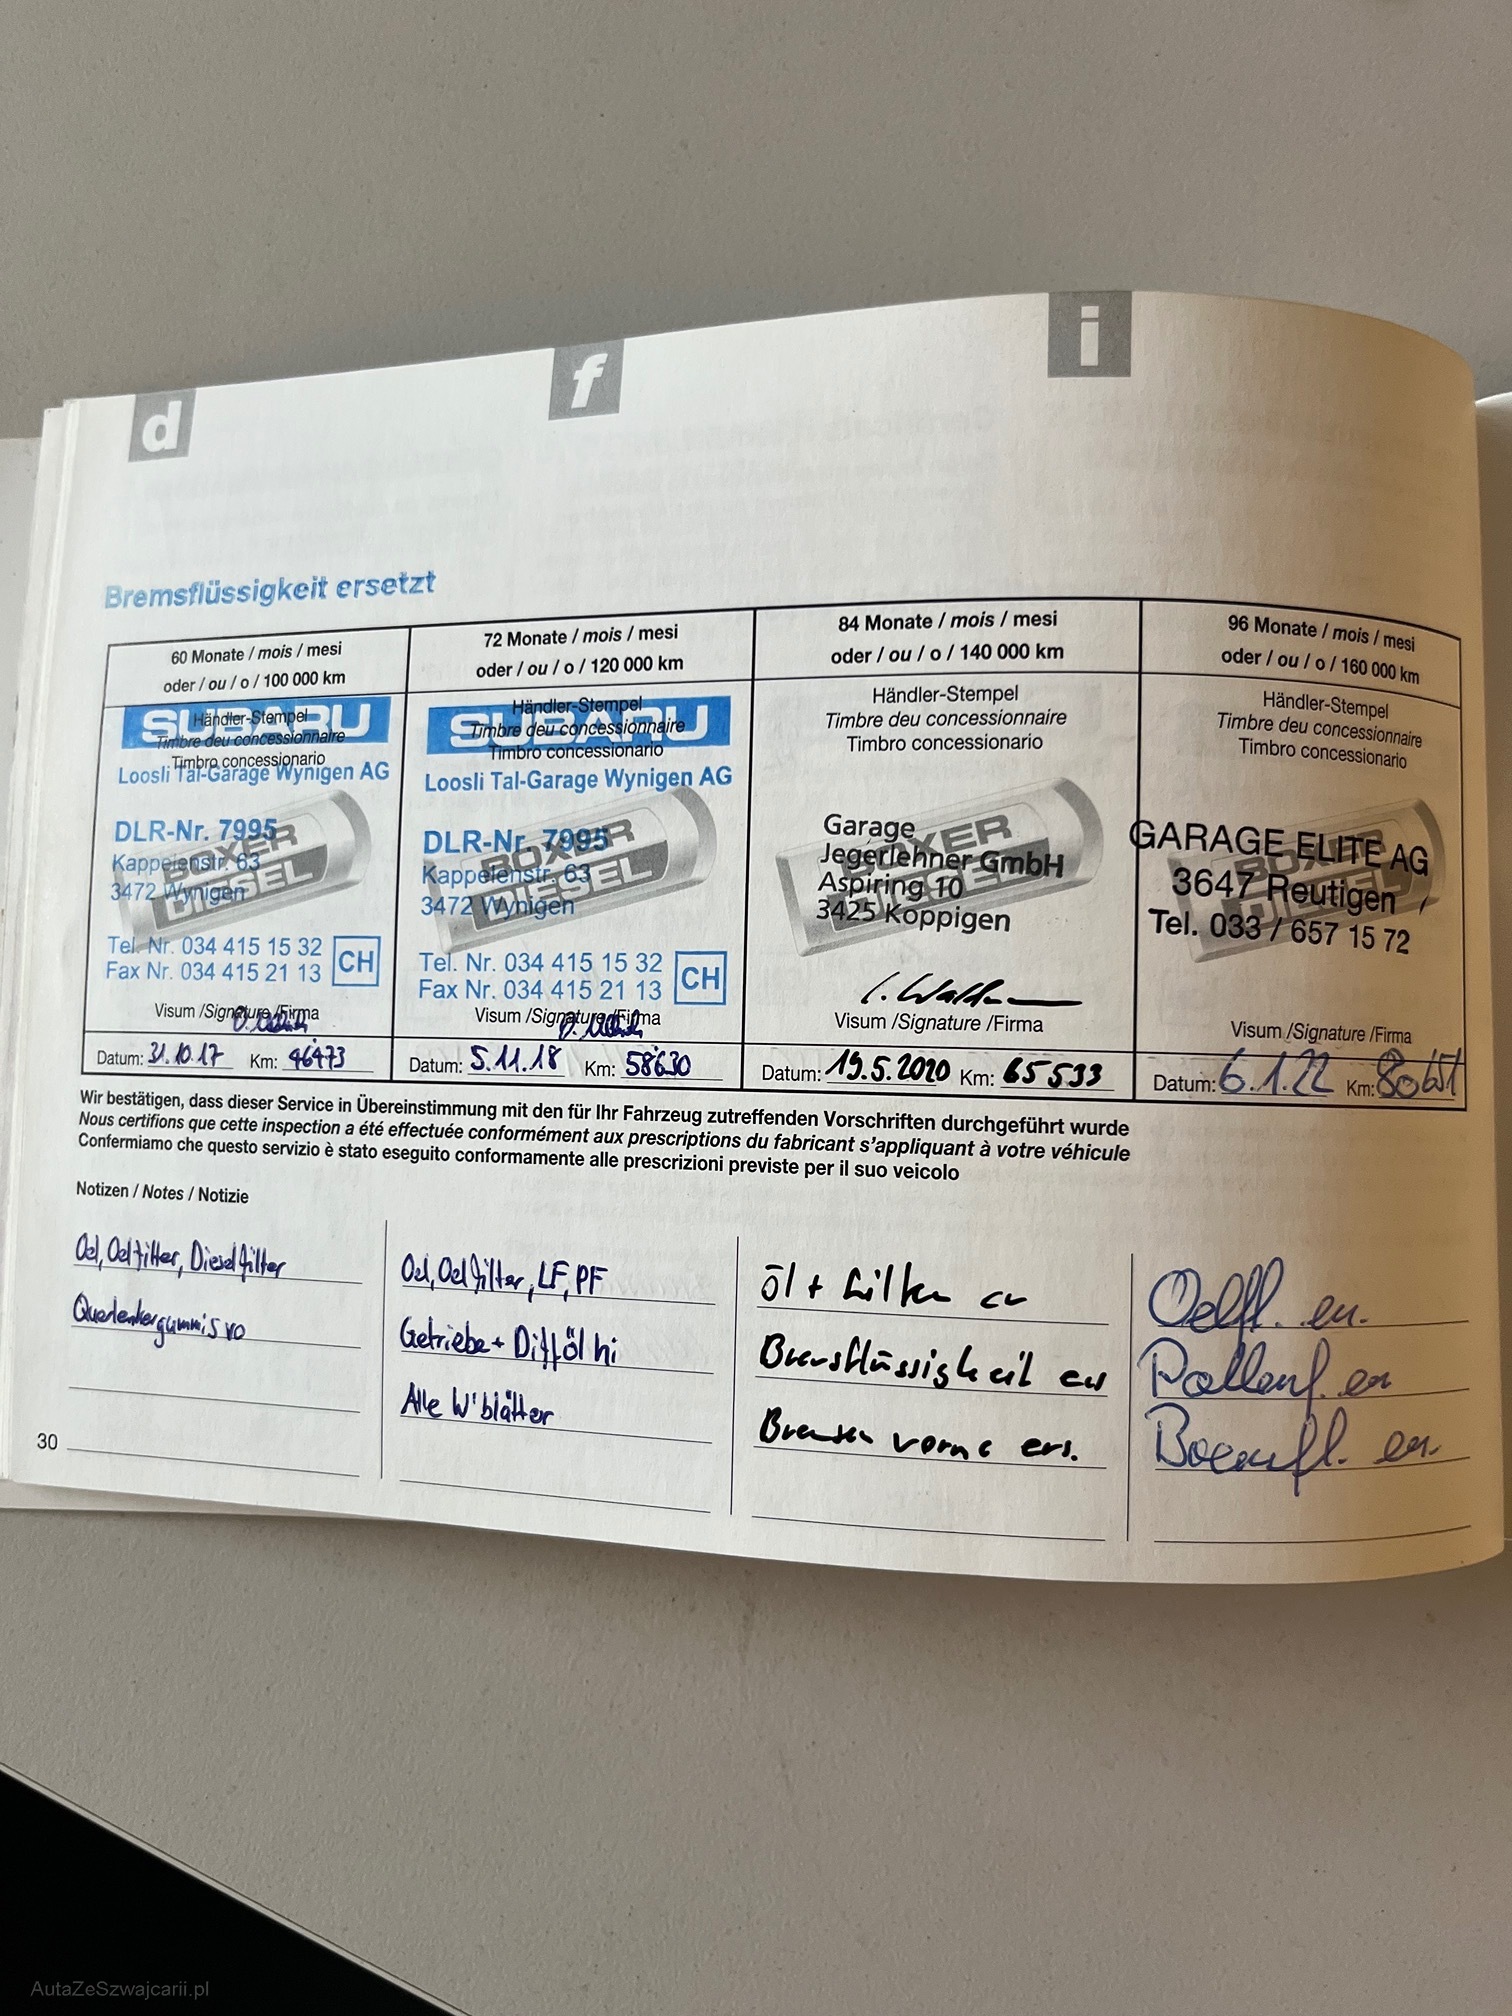 d
f
i
Bremsflüssigkeit ersetzt
60 Monate / mois / mesi
oder / ou / o / 100 000 km
SUBARU
Händler-Stempel
Timbre deu concessionnaire
Timbro concessionario
Loosli Tal-Garage Wynigen AG
DLR-Nr. 7995
Kappelenstr. 63
3472 Wynigen
BOXER
DIESEL
Tel. Nr. 034 415 15 32
Fax Nr. 034 415 21 13
CH
Visum /Signature /Firma
Datum: 31.10.17 Km: 46473
72 Monate / mois / mesi
oder / ou / o / 120 000 km
SUBARU
Händler-Stempel
Timbre deu concessionnaire
Timbro concessionario
Loosli Tal-Garage Wynigen AG
DLR-Nr. 7995
Kappelenstr. 63
3472 Wynigen
BOXER
DIESEL
Tel. Nr. 034 415 15 32
Fax Nr. 034 415 21 13
CH
Visum /Signature /Firma
Datum: 5.11.18 Km: 58630
84 Monate / mois / mesi
oder / ou / o / 140 000 km
Händler-Stempel
Timbre deu concessionnaire
Timbro concessionario
BOXER
DIESEL
Garage
Jegerlehner GmbH
Aspiring 10
3425 Koppigen
Visum /Signature /Firma
Datum: 19.5.2020 Km: 65533
96 Monate / mois / mesi
oder / ou / o / 160 000 km
Händler-Stempel
Timbre deu concessionnaire
Timbro concessionario
BOXER
DIESEL
GARAGE ELITE AG
3647 Reutigen
Tel. 033 / 657 15 72
Visum /Signature /Firma
Datum: 6.1.22 Km: 80651
Wir bestätigen, dass dieser Service in Übereinstimmung mit den für Ihr Fahrzeug zutreffenden Vorschriften durchgeführt wurde
Nous certifions que cette inspection a été effectuée conformément aux prescriptions du fabricant s'appliquant à votre véhicule
Confermiamo che questo servizio è stato eseguito conformamente alle prescrizioni previste per il suo veicolo
Notizen / Notes / Notizie
Oel, Oelfilter, Dieselfilter
Querlenkergummis vo
Oel, Oelfilter, LF, PF
Getriebe + Difföl hi
Alle W'blätter
öl + Filter er
Bremsflüssigkeit er
Bremsen vorne ers.
Oelfl. er.
Pollenf. er
Bremsfl. er.
30
AutaZeSzwajcarii.pl